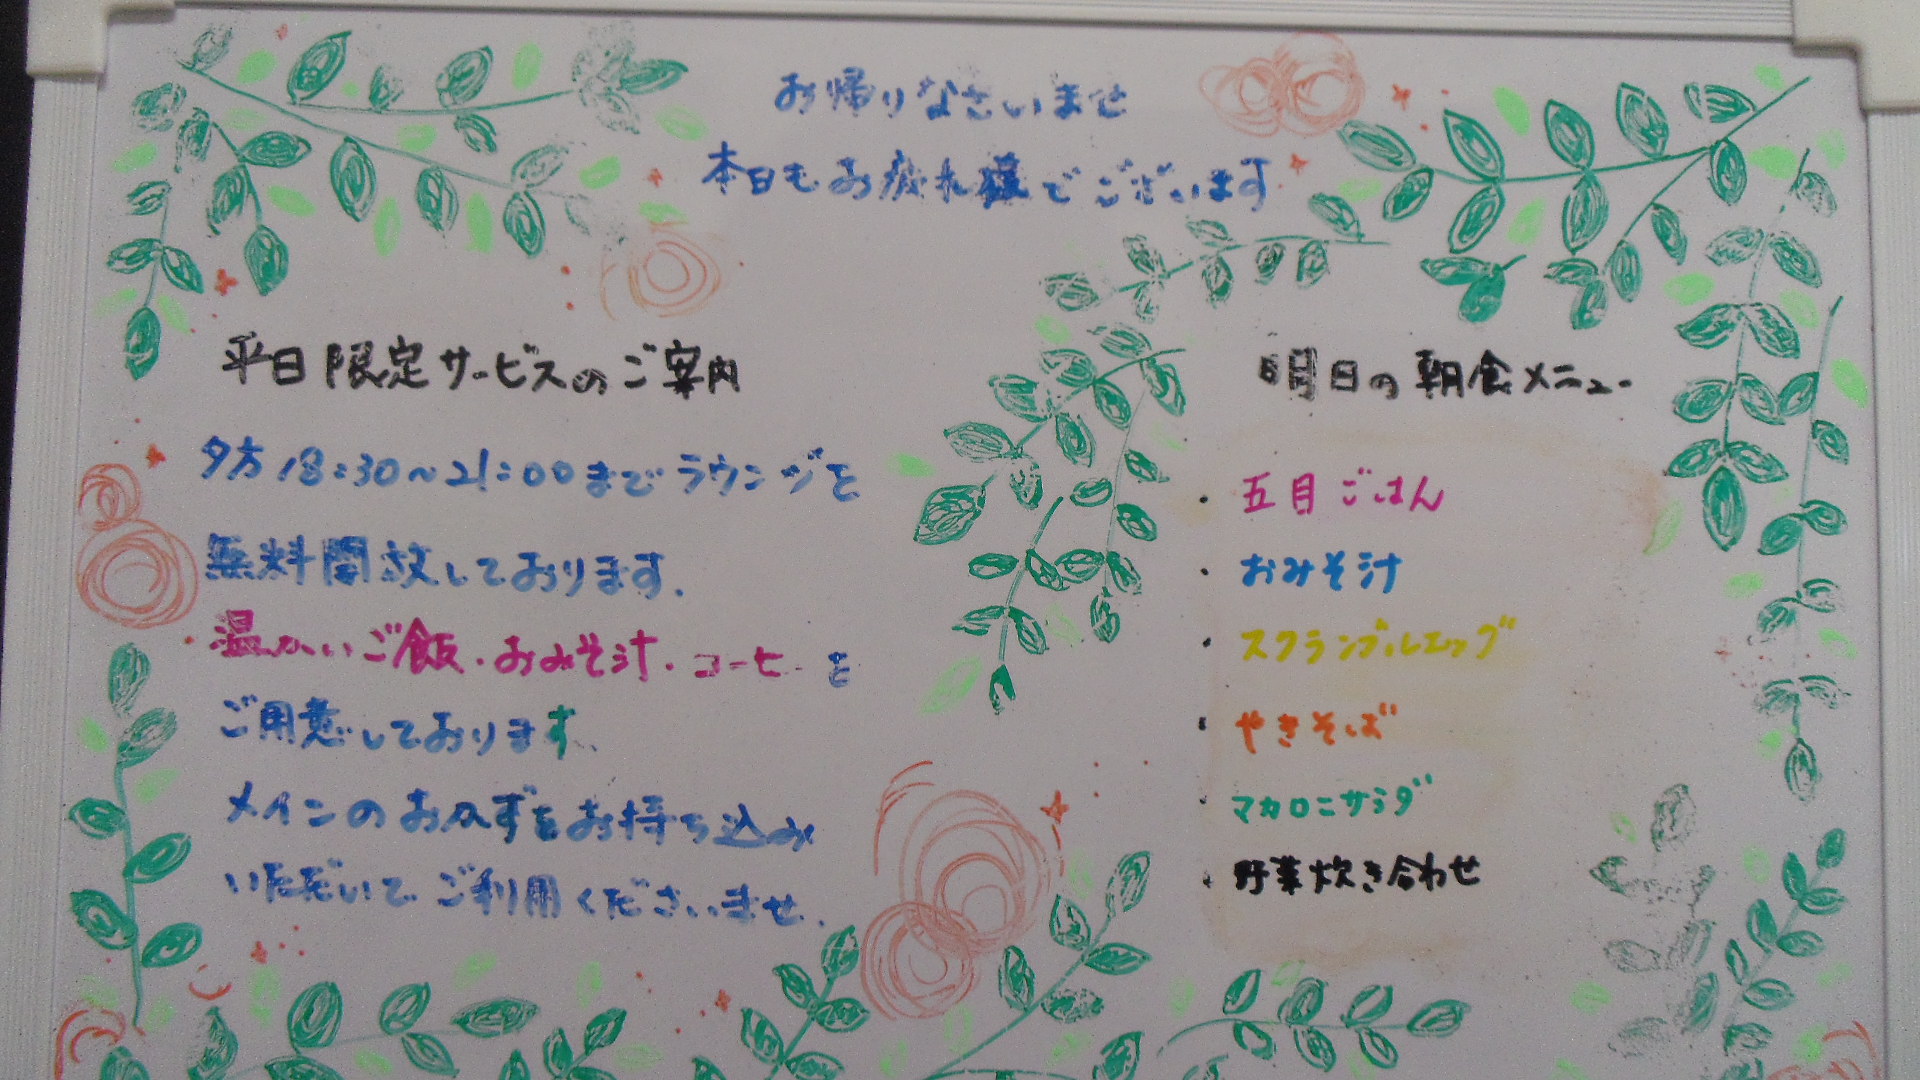 お帰りなさいませ
本日もお疲れ様でございます
平日限定サービスのご案内
夕方18:30〜21:00までラウンジを
無料開放しております.
温かいご飯・おみそ汁・コーヒーを
ご用意しております.
メインのおかずをお持ち込み
いただいてご利用くださいませ.
明日の朝食メニュー
・五目ごはん
・おみそ汁
・スクランブルエッグ
・やきそば
・マカロニサラダ
・野菜炊き合わせ